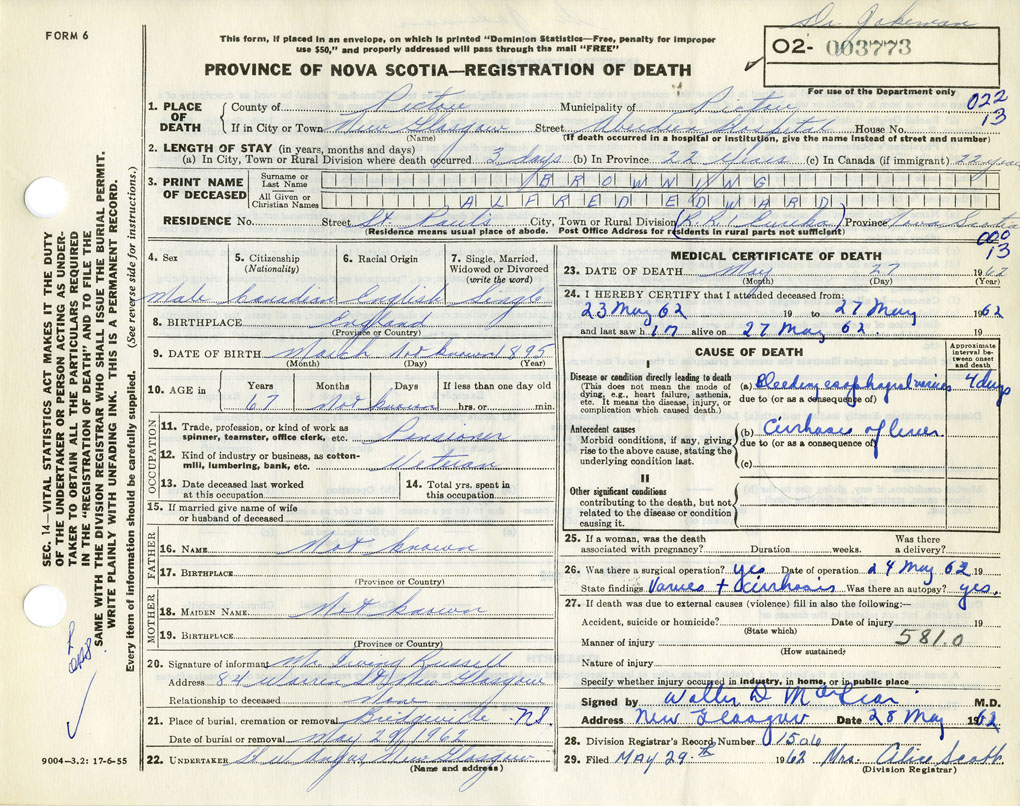 Dr. Jakeman
FORM 6
This form, if placed in an envelope, on which is printed "Dominion Statistics—Free, penalty for improper
use $50," and properly addressed will pass through the mail "FREE"
O2- 003773
For use of the Department only
PROVINCE OF NOVA SCOTIA—REGISTRATION OF DEATH
022
13
1. PLACE OF DEATH
County of Pictou Municipality of Pictou
If in City or Town New Glasgow Street Aberdeen Hospital House No.
(Name) (If death occurred in a hospital or institution, give the name instead of street and number)
2. LENGTH OF STAY (in years, months and days)
(a) In City, Town or Rural Division where death occurred 3 days (b) In Province 22 years (c) In Canada (if immigrant) 22 years
3. PRINT NAME OF DECEASED
Surname or Last Name BROWNING
All Given or Christian Names ALFRED EDWARD
RESIDENCE No. Street St. Pauls City, Town or Rural Division R.R. Province Nova Scotia
(Residence means usual place of abode. Post Office Address for residents in rural parts not sufficient)
000
13
4. Sex
Male
5. Citizenship
(Nationality)
Canadian
6. Racial Origin
English
7. Single, Married,
Widowed or Divorced
(write the word)
Single
8. BIRTHPLACE England
(Province or Country)
9. DATE OF BIRTH March Not known 1895
(Month) (Day) (Year)
10. AGE in
Years Months Days If less than one day old
67 Not known hrs. or min.
OCCUPATION
11. Trade, profession, or kind of work as
spinner, teamster, office clerk, etc. Pensioner
12. Kind of industry or business, as cotton-
mill, lumbering, bank, etc. Veteran
13. Date deceased last worked
at this occupation
14. Total yrs. spent in
this occupation
15. If married give name of wife
or husband of deceased
FATHER
16. NAME Not known
17. BIRTHPLACE
(Province or Country)
MOTHER
18. MAIDEN NAME Not known
19. BIRTHPLACE
(Province or Country)
20. Signature of informant Mr. Irving Russell
Address 84 Warren St. New Glasgow
Relationship to deceased None
21. Place of burial, cremation or removal Bridgeville N.S.
Date of burial or removal May 29, 1962
22. UNDERTAKER Angus, New Glasgow
(Name and address)
MEDICAL CERTIFICATE OF DEATH
23. DATE OF DEATH May 27 1962
(Month) (Day) (Year)
24. I HEREBY CERTIFY that I attended deceased from:
23 May 62 19 to 27 May 1962
and last saw h im alive on 27 May 62. 19
CAUSE OF DEATH
Approximate
interval be-
tween onset
and death
I
Disease or condition directly leading to death
(This does not mean the mode of
dying, e.g., heart failure, asthenia,
etc. It means the disease, injury, or
complication which caused death.)
(a) Bleeding esophageal varices 4 days
due to (or as a consequence of)
Antecedent causes
Morbid conditions, if any, giving
rise to the above cause, stating the
underlying condition last.
(b) Cirrhosis of liver
due to (or as a consequence of)
(c)
II
Other significant conditions
contributing to the death, but not
related to the disease or condition
causing it.
25. If a woman, was the death
associated with pregnancy? Duration weeks. Was there
a delivery?
26. Was there a surgical operation? yes Date of operation 24 May 62 19
State findings Varices + cirrhosis Was there an autopsy? yes.
27. If death was due to external causes (violence) fill in also the following:—
Accident, suicide or homicide? Date of injury 19
(State which)
Manner of injury 581.0
(How sustained)
Nature of injury
Specify whether injury occurred in industry, in home, or in public place
Signed by Walter D. M.D.
Address New Glasgow Date 28 May 1962
28. Division Registrar's Record Number 1506
29. Filed MAY 29th 1962 Mrs. Alice Scott
(Division Registrar)
SEC. 14—VITAL STATISTICS ACT MAKES IT THE DUTY
OF THE UNDERTAKER OR PERSON ACTING AS UNDER-
TAKER TO OBTAIN ALL THE PARTICULARS REQUIRED
IN THE "REGISTRATION OF DEATH" AND TO FILE THE
SAME WITH THE DIVISION REGISTRAR WHO SHALL ISSUE THE BURIAL PERMIT.
WRITE PLAINLY WITH UNFADING INK. THIS IS A PERMANENT RECORD.
Every item of information should be carefully supplied. (See reverse side for instructions.)
9004—3.2: 17-6-55